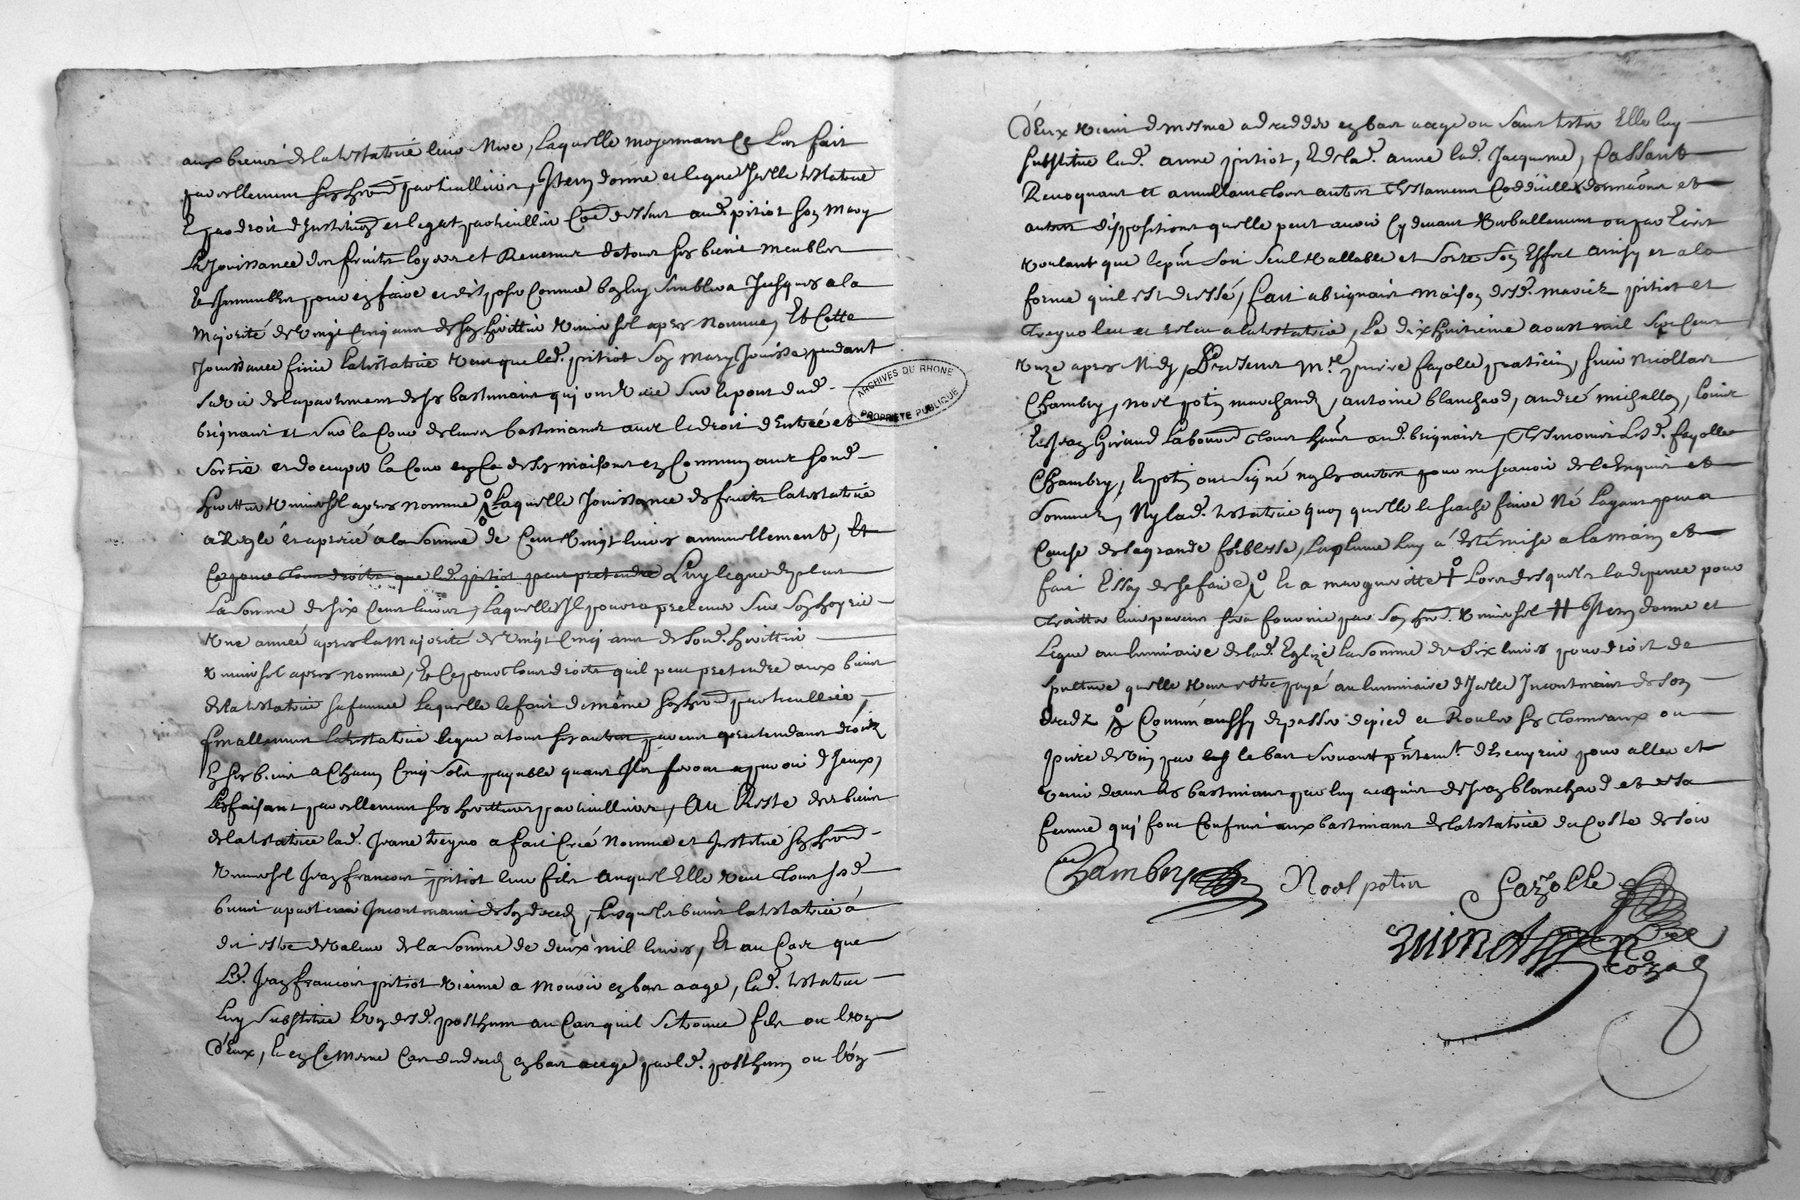 aux biens de la testatrice leur Mere, Laquelle moyennant ce Les fait
pareillement ses hers particulliers, Item donne et legue Icelle testatrice
Et par droit d'Institution et legat particullier Coe dessus aud. pitiot son Mary
La Jouissance des fruits loyers et Revenus de tous ses biens meubles
Et Immeubles pour en faire et disposer Comme bon luy semblera Jusques a la
Majorité de Vingt Cinq ans de son herittier Universel apres Nommé, Et Cette
Jouissance finie la testatrice Veut que led. pitiot son Mary Jouisse pendant
Sa Vie de l'apartement de ses bastimants qui ont Veüe Sur le pont dud.
brignais et sur la Cour de leurs bastimants avec le droit d'Entrée et
Sortie et d'occuper la Cour de ses maisons en Commun avec sond.
herittier Universel apres nommé Laquelle Jouissance de fruits la testatrice
a Reglé et aprecié a la Somme de Cent Vingt livres annuellement, Et
Ce pour tous droits que led. pitiot peut pretendre Luy legue de plus
La Somme de six Cent livres, laquelle Il pourra prelever Sur son hoyrie
Une année apres la Majorité de Vingt Cinq ans de Sond. herittier
Universel apres nommé, Et Ce pour tous droits qu'il peut pretendre aux biens
de la testatrice sa femme Lequelle le fait de même son her particullier,
finallement la testatrice legue a tous ses autres parens pretendants droits
En ses biens a Chacun Cinq Sols payable quant Ils feront aparoir d'Iceux,
Les faisant pareillement ses herittiers particulliers, Au Reste de ses biens
de la testatrice lad. Jeane treyno a fait Créé Nommé et Institué son her
Universel Jean francois pitiot leur fils Auquel Elle Veut tous sesd.
biens apartenir Incontinant de son deced, Lesquels biens la testatrice a
dit estre de Valeur de la Somme de deux mil livres, Et au Cas que
Led. Jean francois pitiot Vienne a Mourir en bas aage, lad. testatrice
Luy Substitue l'un desd. posthum au Cas qu'il Se trouve fils ou l'un
d'Eux, Et en le meme Cas du deced en bas aage par led. posthum ou l'un
d'Eux Vienne de mesme a decedder en bas aage ou Sans tester Elle luy
Substitue lad. anne pitiot, Et de lad. anne lad. Jacqueme, Cassant
Revoquant et annullant tous autres testament Coddicilles donnaõns et
autres dispositions quelle peut avoir Cy devant Verballement ou par Ecrit
Voulant que le put Soit Seul Vallable et Sorte Son Effect ainsy et a la
forme quil est dressé, fait a brignais maison desd. mariéz pitiot et
treyno leu et releu a la testatrice, Le dixhuitieme aoust mil Sept Cent
Unze apres Midy, Presents Mre. pierre fayolle praticien, Sieur Nicollas
Chambry, noel potin marchand, antoine blanchard, andré michallon, Louis
Et Jean Giraud Laboureur tous hans aud. brignais, tesmoins Lesd. fayolle
Chambry, Et potin ont Signé Ny les autres pour ne scavoir de ce Enquis et
Sommez, Ny lad. testatrice quoy quelle le scache faire Né Layant peu a
Cause de la grande foiblesse, La plume luy a été mise a la main et
fait Essay de le faire, Et a marqué votte + Lors desquels la depence pour
Item donne et
Legue au luminaire de lad. Eglize La Somme de Six livres pour droit de
Sepulture quelle Veut estre payé au luminaire d'Icelle Incontinant de Son
decedz Comme aussy de passer a pied et Rouler ses tonneaux ou
pieces de Vin par le bas pour aller et
Venir dans les bastimans par luy acquis de Jean blanchard et de sa
femme qui font Confins aux bastimans de la testatrice du Costé de Soir
Chambry Noel potin Fayolle